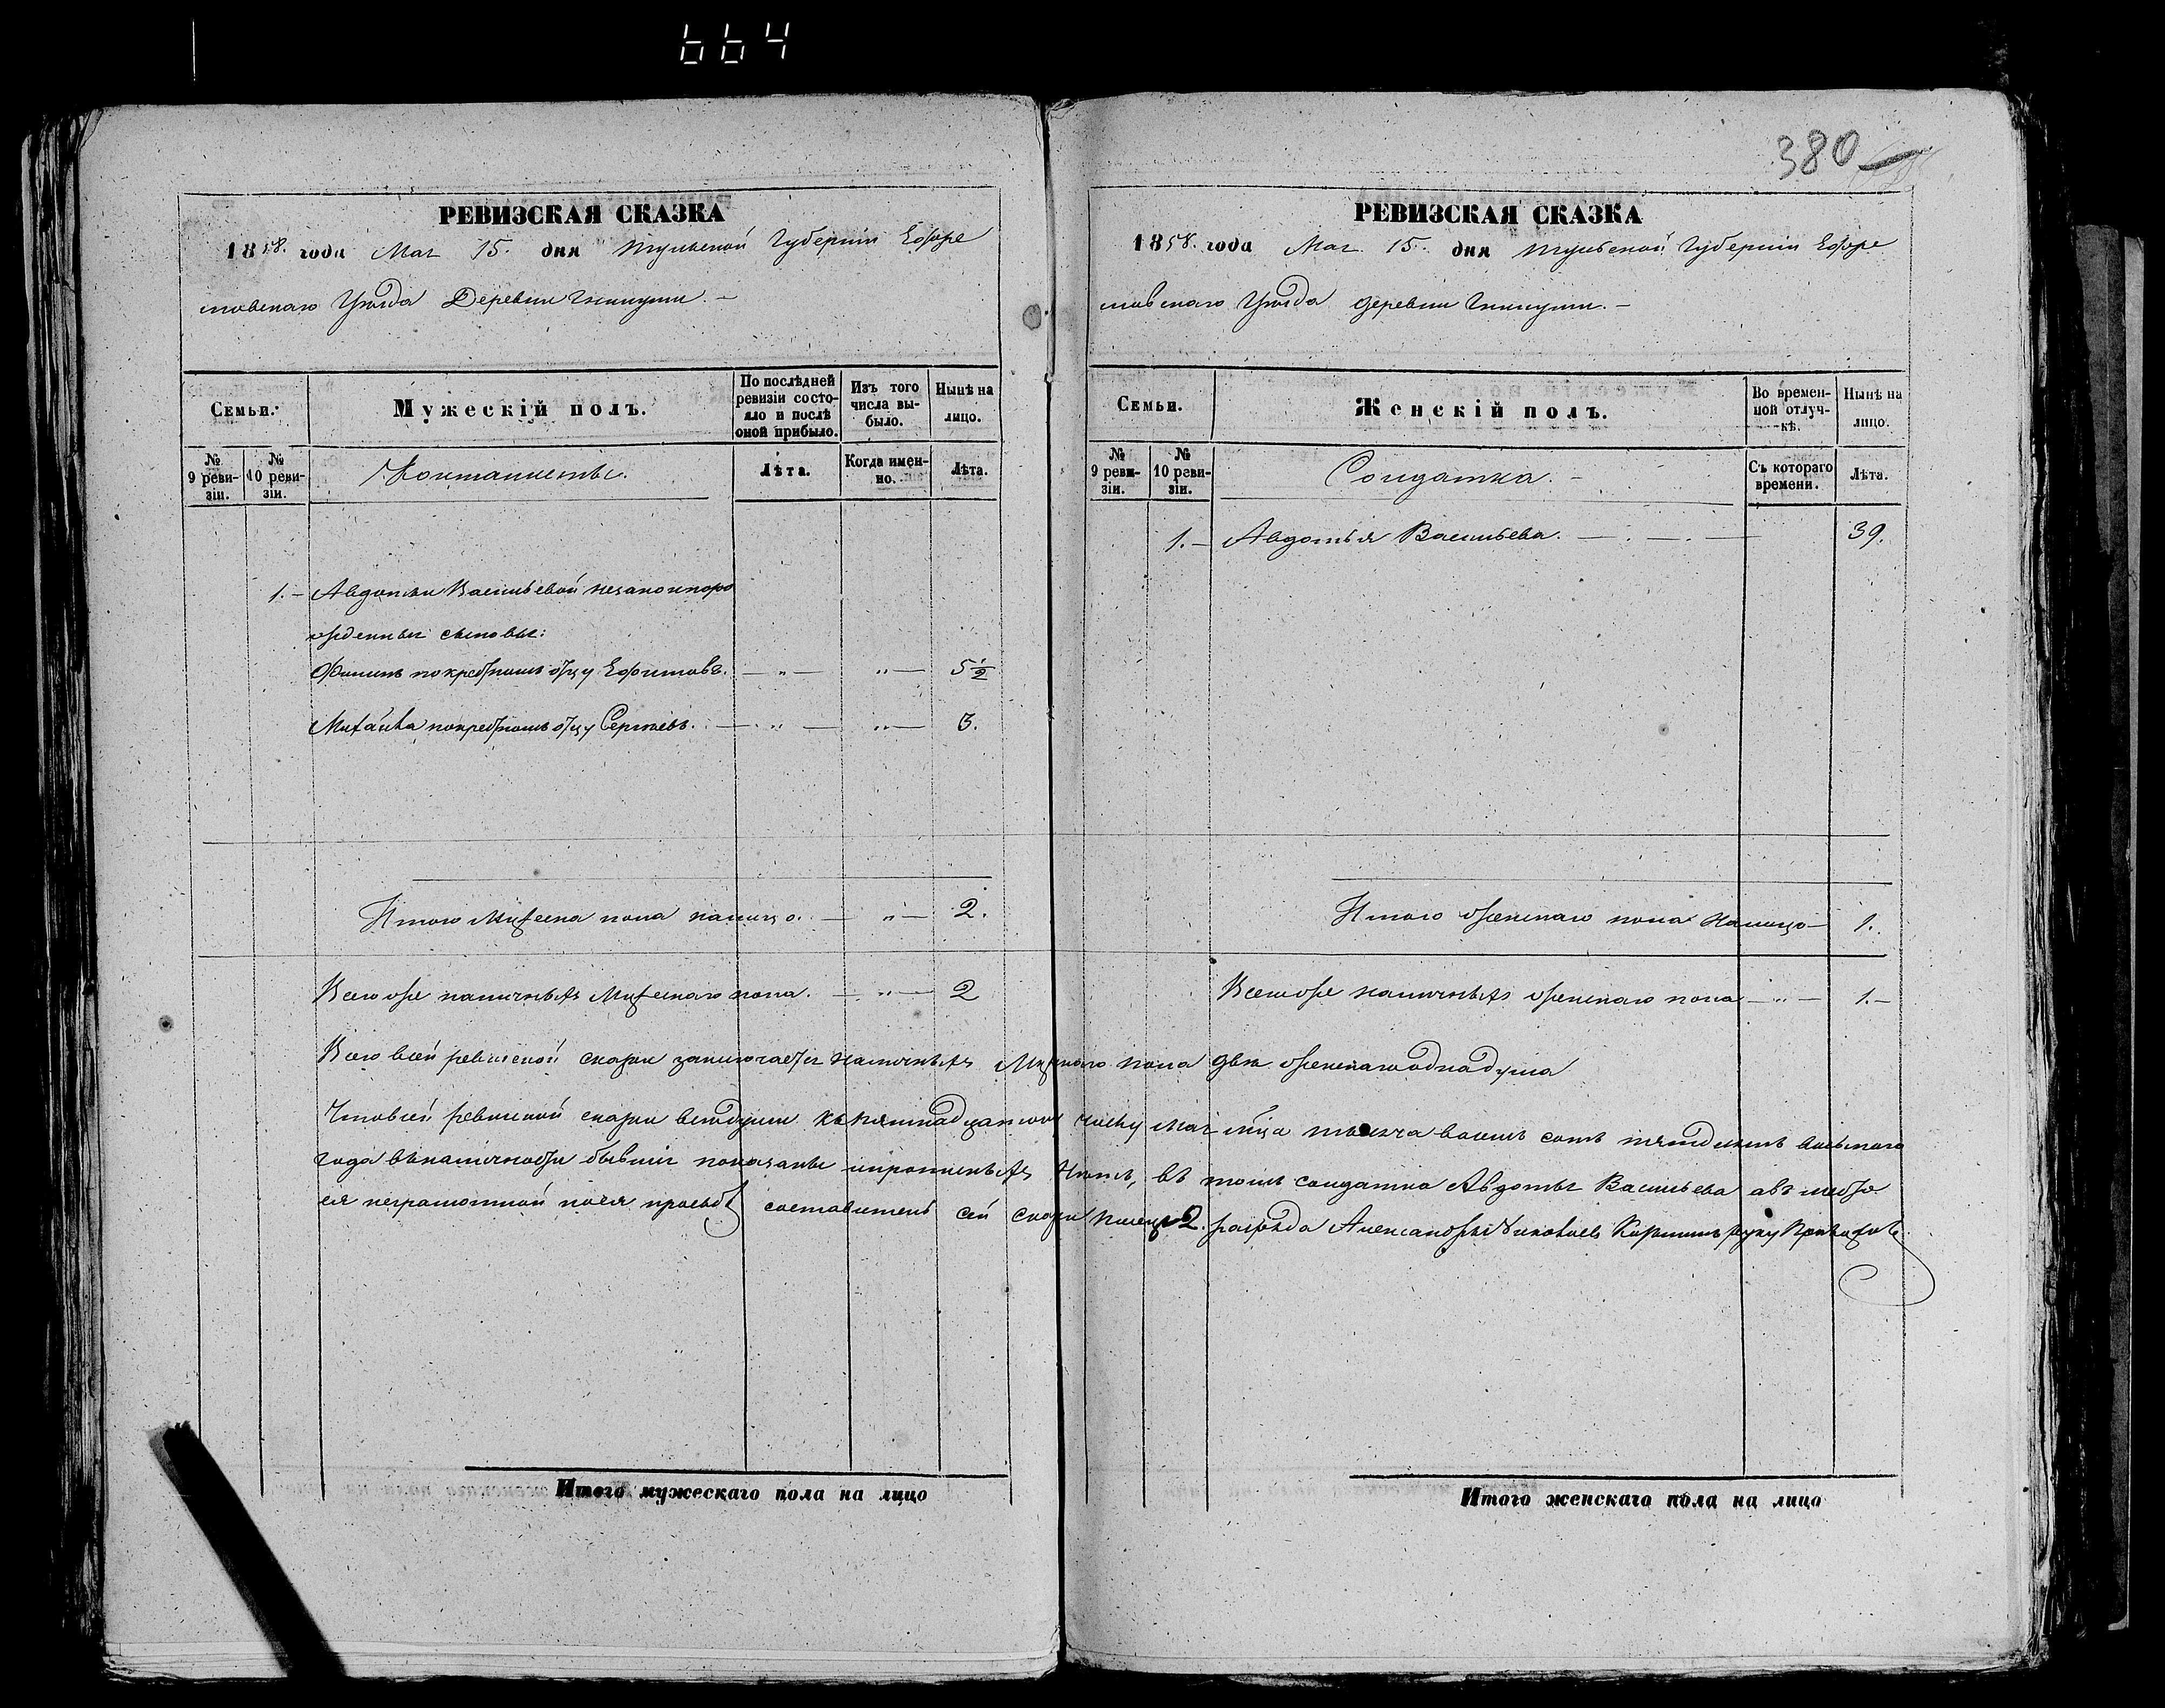 664
380
РЕВИЗСКАЯ СКАЗКА
1858. года Мая 15. дня Тульской Губерніи Ефре
мовскаго Уѣзда Деревни
Семьи.
Мужескій полъ.
По послѣдней ревизіи состояло и послѣ оной прибыло.
Изъ того числа выбыло.
Нынѣ на лицо.
№ 9 ревизіи.
№ 10 ревизіи.
Кантанисты.
Лѣта.
Когда именно.
Лѣта.
1. – Авдотьи Васильевой незаконноро
жденныя сыновья:
Филипъ по крестномъ отцу Ефимовъ. — " — " — 5 1/2
Михайла по крестномъ отцу Сергѣевъ. — " — " — 3.
Итого Мужеска пола налицо. — " — 2.
Всегоже наличныхъ Мужескаго пола. — " — 2
РЕВИЗСКАЯ СКАЗКА
1858. года Мая 15. дня Тульской Губерніи Ефре
мовскаго Уѣзда деревни
Семьи.
Женскій полъ.
Во временной отлучкѣ.
Нынѣ на лицо.
№ 9 ревизіи.
№ 10 ревизіи.
Солдатка. –
Съ котораго времени.
Лѣта.
1. – Авдотья Васильева. — . — . — 39.
Итого женскаго пола налицо – 1.
Всегоже наличныхъ женскаго пола — " — 1. –
Всего всей ревизской сказки заключается наличныхъ Мужскаго пола двѣ женскаго одна душа
Что въ сей ревизской сказки всѣ души къ пятнадцатому числу Мая мѣца тысяча восемь сотъ пятдесятъ восьмого
года въ наличности бывшія показаны и пропиныхъ нѣтъ, въ томъ солдатка Авдотья Васильева а въ место
ея неграмотной поея прозьбѣ составитель сей скаски писецъ 2. разряда Александръ руку приложилъ
Итого мужескаго пола на лицо
Итого женскаго пола на лицо